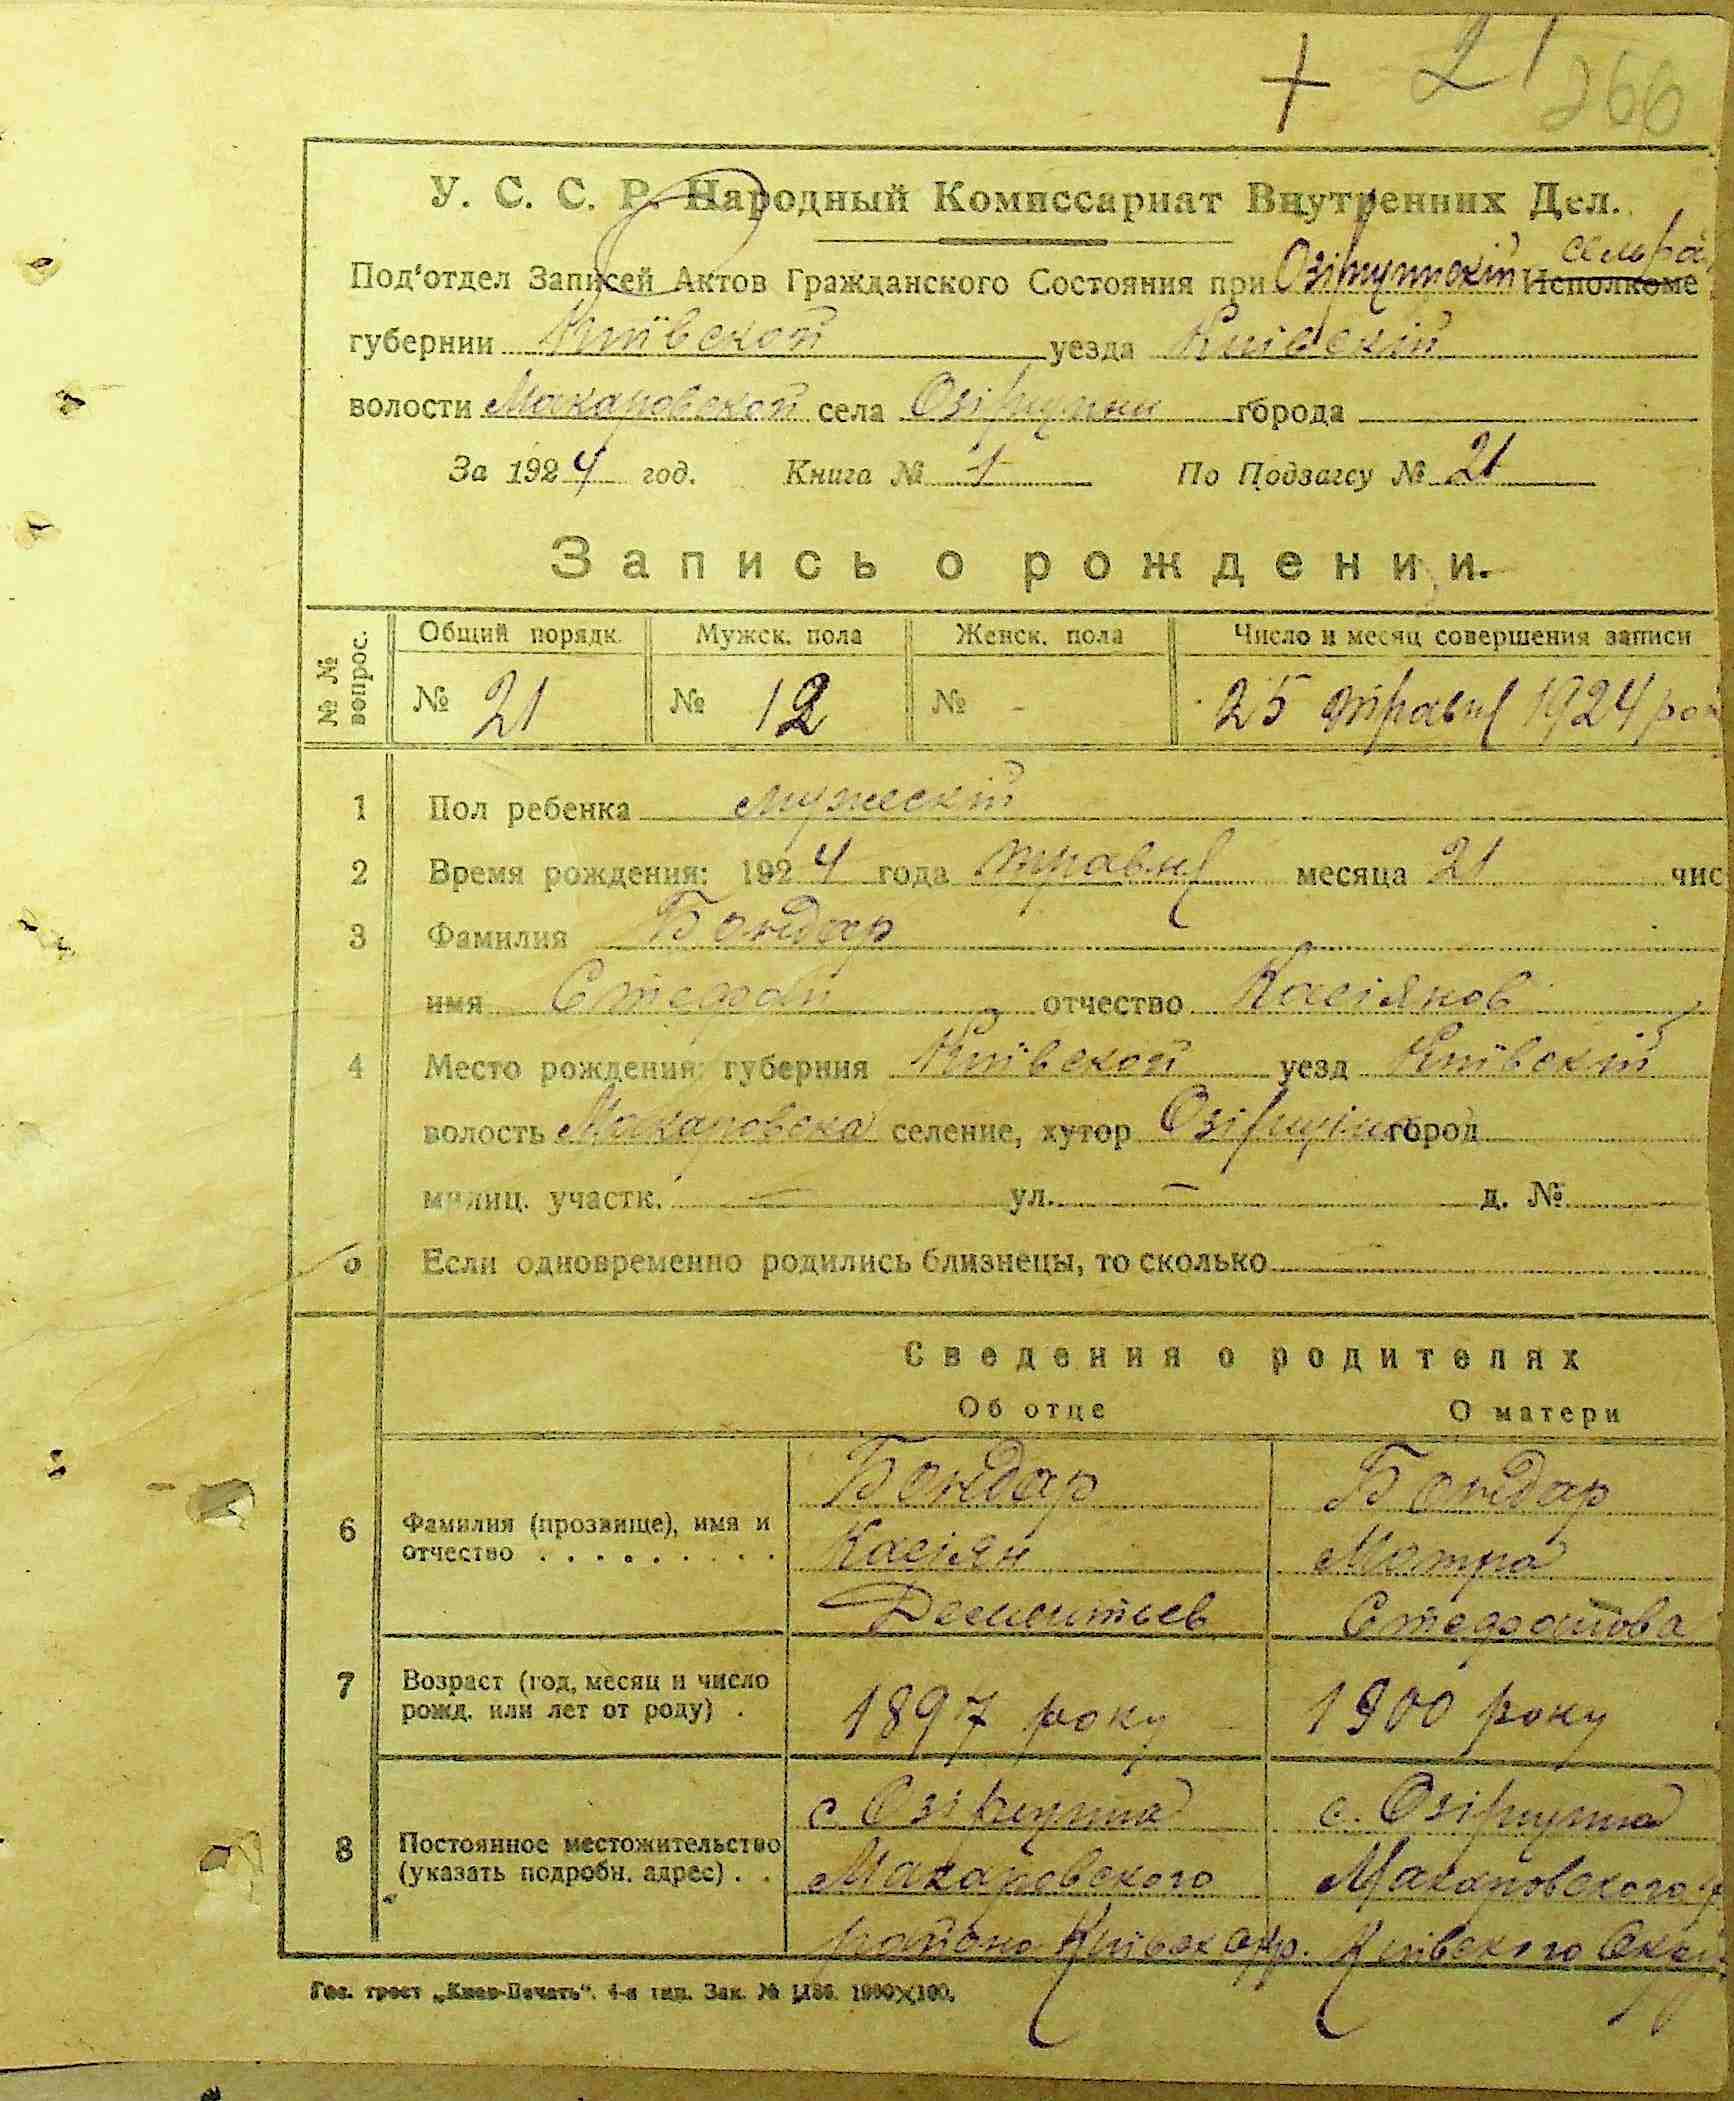 + 21
266
У. С. С. Р. Народный Комиссариат Внутренних Дел.
Под'отдел Записей Актов Гражданского Состояния при Озірщинскій Исполкоме сельра
губернии Київской уезда Київскій
волости Макаровской села Озірщина города
За 1924 год. Книга № 1 По Подзагсу № 21
Запись о рождении.
№ № вопрос. Общий порядк. Мужск. пола Женск. пола Число и месяц совершения записи
№ 21 № 12 № - 25 травня 1924 рок
1 Пол ребенка мужескій
2 Время рождения: 1924 года травня месяца 21 чис
3 Фамилия Бондар
имя Стефан отчество Касіянов
4 Место рождения: губерния Київской уезд Київскій
волость Макаровска селение, хутор Озірщина город
милиц. участк. — ул. — д. №
5 Если одновременно родились близнецы, то сколько
Сведения о родителях
Об отце О матери
6 Фамилия (прозвище), имя и отчество . . . . . . . . .
Бондар Бондар
Касіян Мотря
Дементьев Стефанова
7 Возраст (год, месяц и число рожд. или лет от роду) .
1897 року 1900 року
8 Постоянное местожительство (указать подробн. адрес) . .
с. Озірщина с. Озірщина
Макаровского Макаровского р
района Київск окр. Київского Окру
Гос. трест „Киев-Печать". 4-я тип. Зак. № 1186. 1000×100.